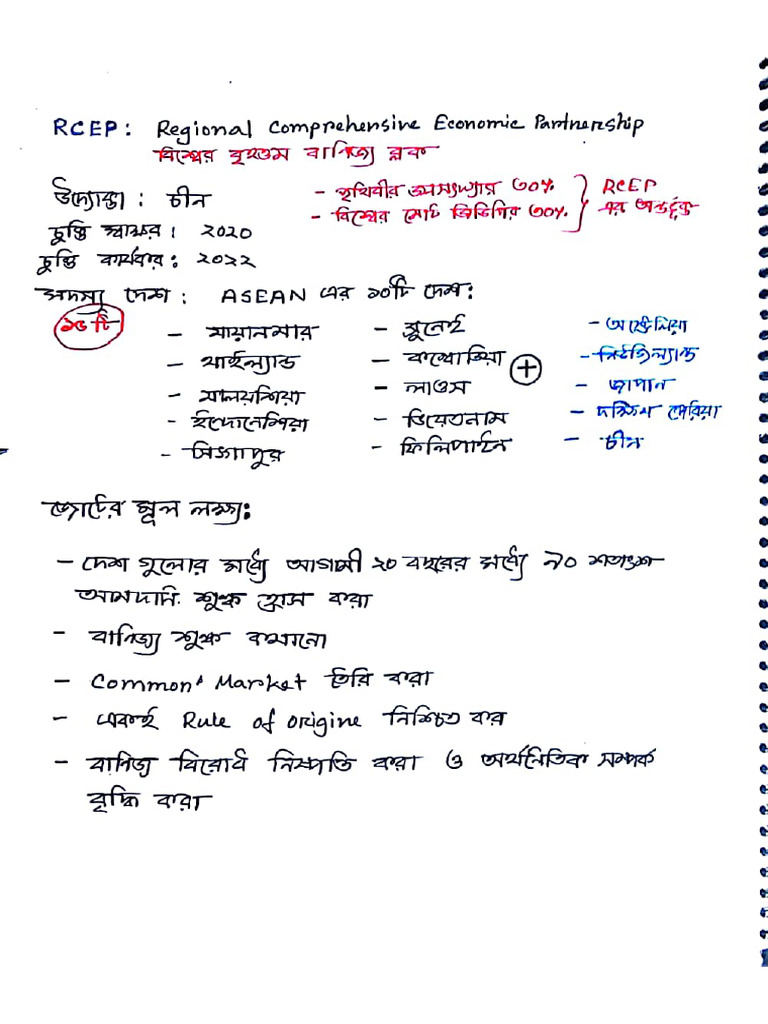 RCEP: Regional Comprehensive Economic Partnership
বিশ্বের বৃহত্তম বানিজ্য ব্লক
উদ্যোক্তা: চীন
- পৃথিবীর জনসংখ্যার ৩০%
- বিশ্বের মোট জিডিপির ৩০%
RCEP
এর অন্তর্ভুক্ত
চুক্তি স্বাক্ষর: ২০২০
চুক্তি কার্যকর: ২০২২
সদস্য দেশ: ASEAN এর ১০টি দেশ:
১৫টি
- মায়ানমার - ব্রুনেই - অস্ট্রেলিয়া
- থাইল্যান্ড - কম্বোডিয়া + - নিউজিল্যান্ড
- মালয়শিয়া - লাওস - জাপান
- ইন্দোনেশিয়া - ভিয়েতনাম - দক্ষিণ কোরিয়া
- সিঙ্গাপুর - ফিলিপাইন - চীন
জোটের মূল লক্ষ্য:
- দেশ গুলোর মধ্যে আগামী ২০ বছরের মধ্যে ৯০ শতাংশ
আমদানি শুল্ক হ্রাস করা
- বানিজ্য শুল্ক কমানো
- Common Market তৈরি করা
- একই Rule of origine নিশ্চিত কর
- বানিজ্য বিরোধ নিষ্পতি করা ও অর্থনিতিক সম্পর্ক
বৃদ্ধি করা